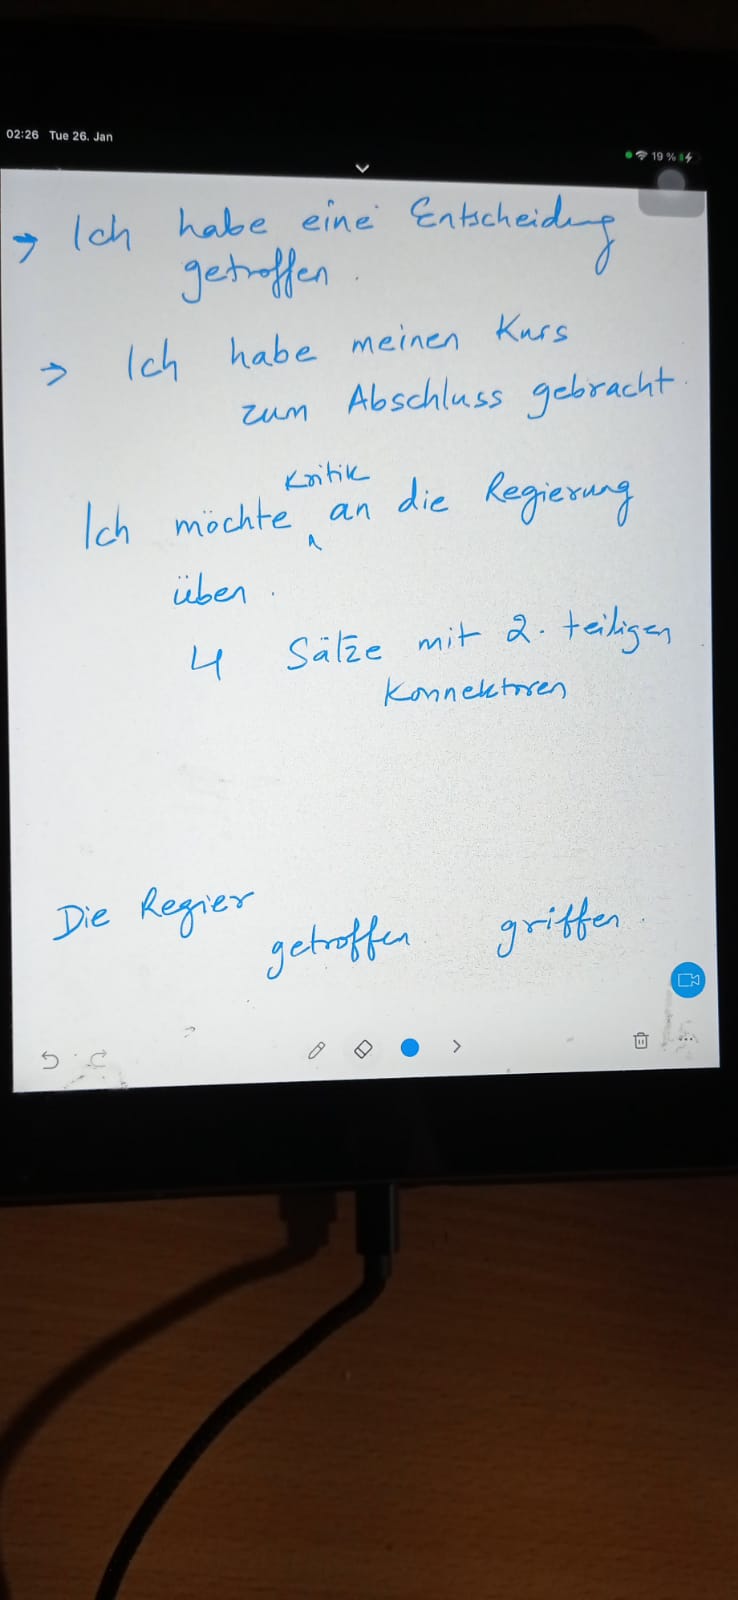 02:26 Tue 26. Jan
19 %
→ Ich habe eine Entscheidung
getroffen.
→ Ich habe meinen Kurs
zum Abschluss gebracht.
Kritik
Ich möchte ^ an die Regierung
üben.
4 Sätze mit 2. teiligen
Konnektoren
Die Regier
getroffen griffen.